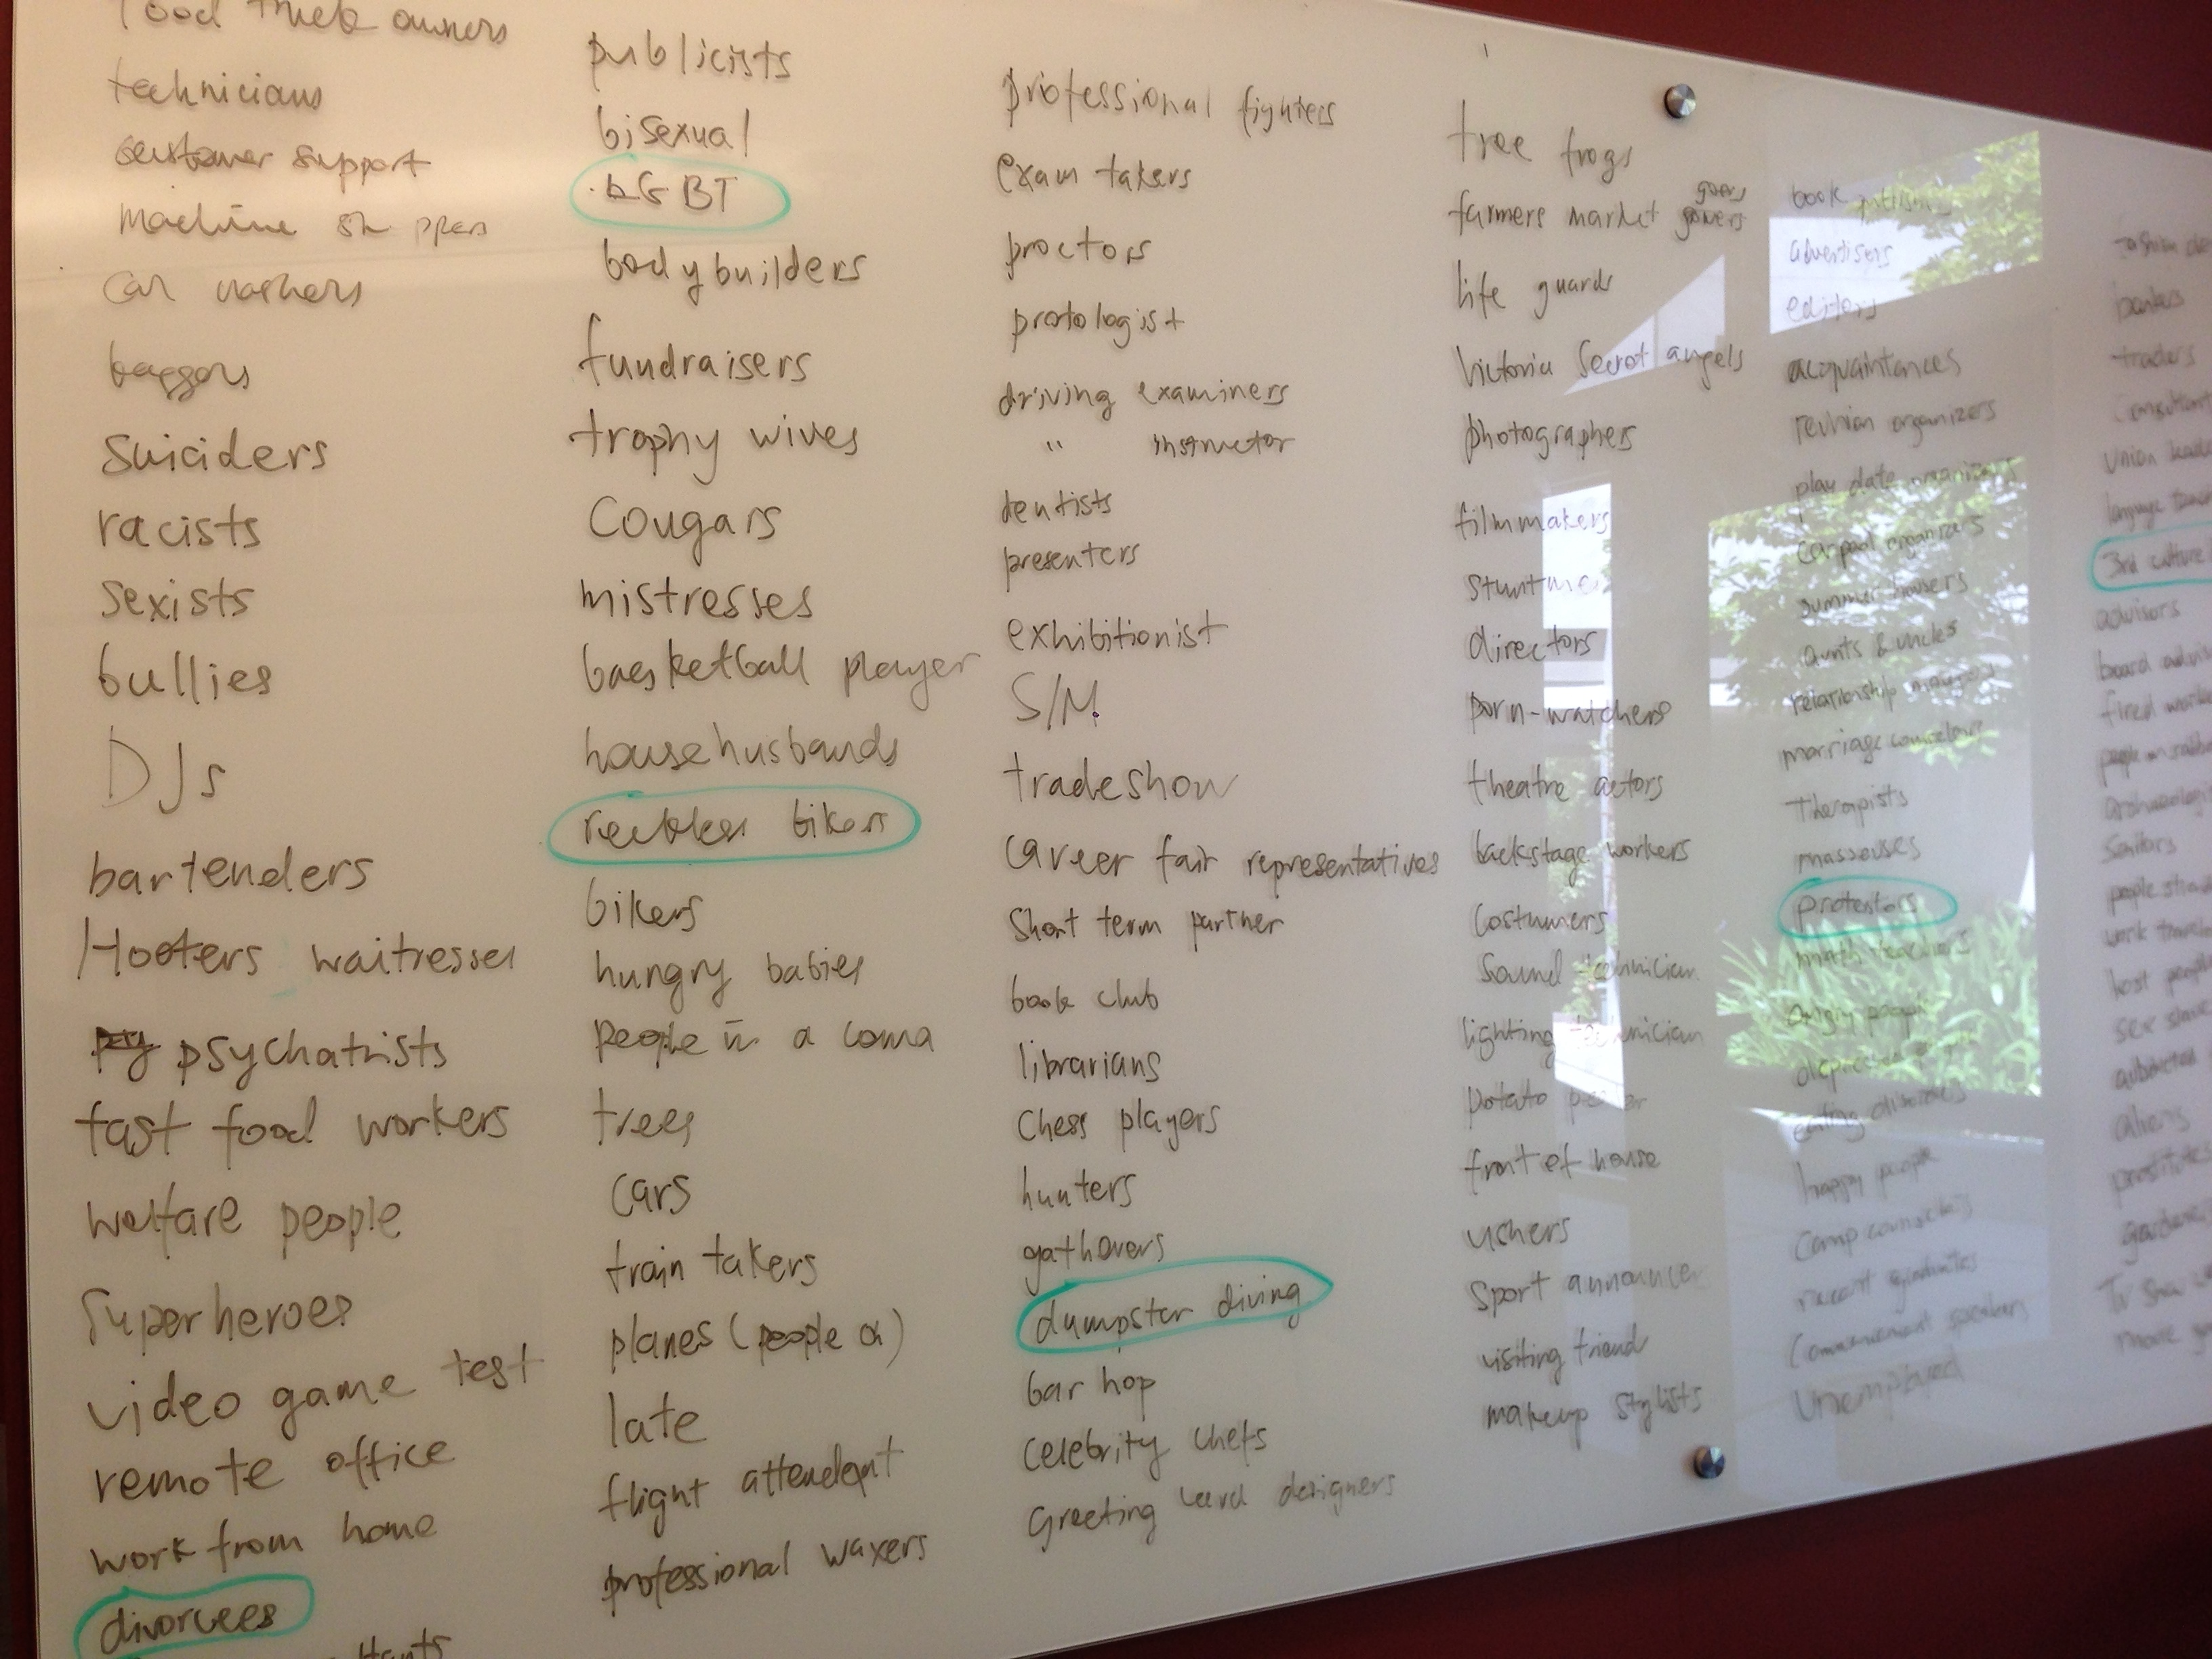 food truck owners
technicians
customer support
machine
car washers
baggers
suiciders
racists
sexists
bullies
DJs
bartenders
Hooters waitresses
psychatrists
fast food workers
welfare people
Superheroes
video game test
remote office
work from home
divorcees
publicists
bisexual
LGBT
bodybuilders
fundraisers
trophy wives
Cougars
mistresses
baesketball player
househusbands
reckless bikers
bikers
hungry babies
people in a coma
trees
cars
train takers
planes (people on)
late
flight attendent
professional waxers
professional fighters
exam takers
proctors
protologist
driving examiners
" instructor
dentists
presenters
exhibitionist
S/M
tradeshow
career fair representatives
Short term partner
book club
librarians
Chess players
hunters
gatherers
dumpster diving
bar hop
celebrity chefs
Greeting card designers
tree frogs
goers
farmers market
life guards
Victoria Secret angels
photographers
filmmakers
stuntme
directors
porn-watchers
theatre actors
backstage workers
costumers
Sound technician
lighting technician
potato
front of house
ushers
Sport announcer
visiting friend
makeup stylists
book
advertisers
editors
acquaintances
reunion organizers
play date organizers
carpool organizers
summer housers
aunts & uncles
relationship
marriage counselours
Therapists
masseuses
protestors
math teachers
angry people
depressed people
eating disorders
happy people
camp counselors
recent graduates
Commencement speakers
Unemployed
fashion
bankers
traders
Consultant
Union
language
3rd culture
advisors
board
fired
people on
people
work
host people
sex
abducted
aliens
prostitutes
TV